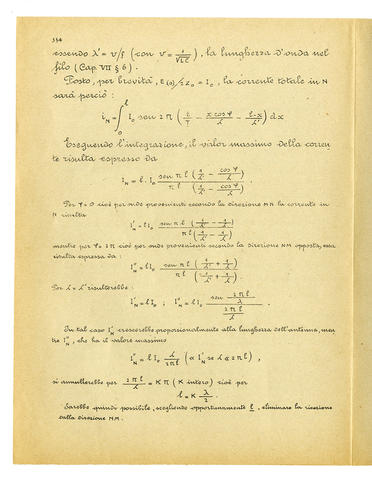 334
essendo λ' = V/f (con V = 1/√LC), la lunghezza d'onda nel
filo (Cap. VII § 6).
Posto, per brevità, E(0)/2Z₀ = I₀, la corrente totale in N
sarà perciò:
i_N = ∫₀^l I₀ sen 2π (t/T − x cos φ/λ − (l−x)/λ') dx
Eseguendo l'integrazione, il valor massimo della corren
te risulta espresso da
I_N = l. I₀ sen π l (1/λ' − cos φ/λ) / π l (1/λ' − cos φ/λ)
Per φ = 0 cioè per onde provenienti secondo la direzione MN la corrente in
N risulta
I'_N = l I₀ sen π l (1/λ' − 1/λ) / π l (1/λ' − 1/λ)
mentre per φ = 2π cioè per onde provenienti secondo la direzione NM opposta, essa
risulta espressa da:
I''_N = l I₀ sen π l (1/λ' + 1/λ) / π l (1/λ' + 1/λ)
Per λ = λ' risulterebbe:
I'_N = l I₀ ; I''_N = l I₀ sen 2πl/λ / 2πl/λ
In tal caso I'_N crescerebbe proporzionalmente alla lunghezza dell'antenna, men
tre I''_N, che ha il valore massimo
I''_N = l I₀ λ/2πl (α I'_N se λ α 2πl),
si annullerebbe per 2πl/λ = Kπ (K intero) cioè per
l = K λ/2.
Sarebbe quindi possibile, scegliendo opportunamente l, eliminare la ricezione
sulla direzione NM.